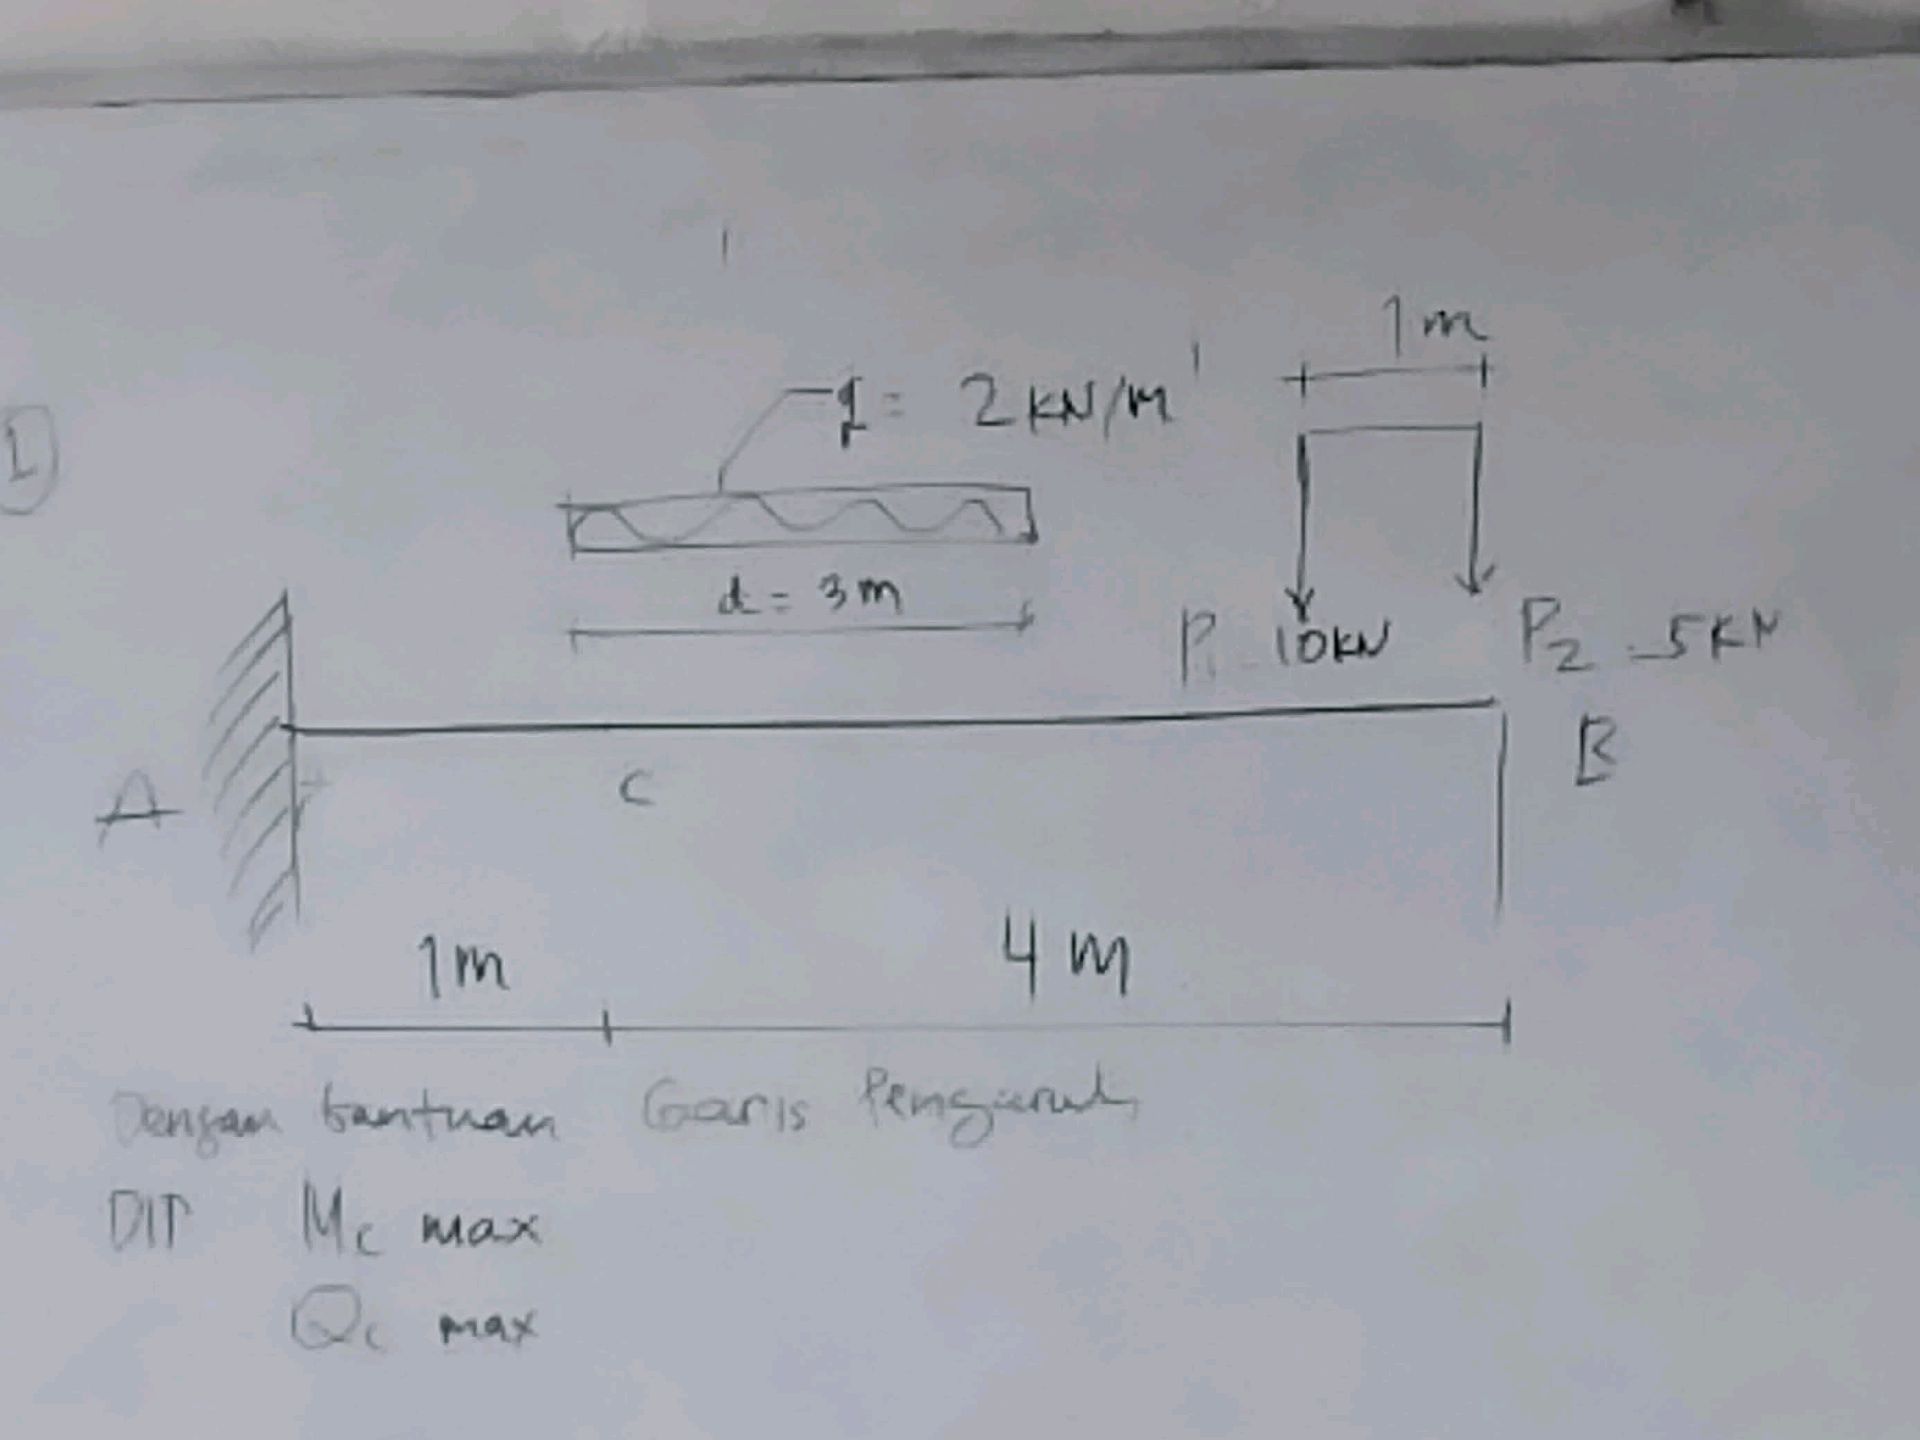 1
1 m
q = 2 KN/m'
d = 3 m
P1 10KN P2 5 KN
A C B
1 m 4 m
Dengan bantuan Garis Pengaruh
DIT Mc max
Qc max